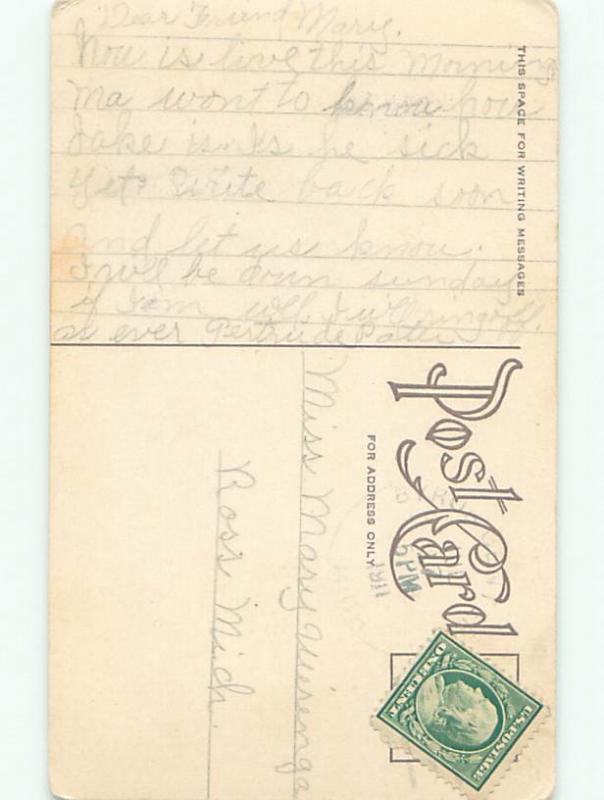 Dear Friend Mary.
How is live this morning
Ma wont to know how
Jake is is he sick
yet write back soon
and let us know.
I will be down sunday
if I am well. I will ring off.
as ever Gertrude
THIS SPACE FOR WRITING MESSAGES
Post Card
FOR ADDRESS ONLY
BYRON
5 PM
1911
MICH
Miss Mary Wierenga
Ross Mich.
U.S. POSTAGE
ONE CENT